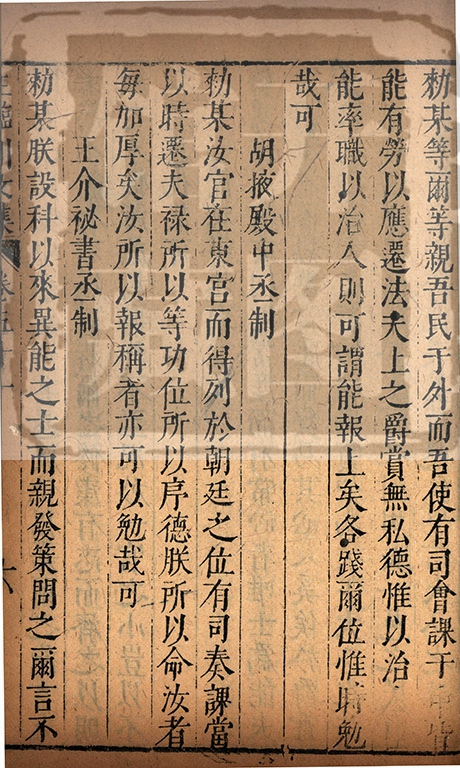 勑某等爾等親吾民于外而吾使有司會課于中皆
能有勞以應遷法夫上之爵賞無私德惟以治
能率職以治人則可謂能報上矣各踐爾位惟時勉
哉可
胡掖殿中丞制
勑某汝官在東宮而得列於朝廷之位有司奏課當
以時遷夫禄所以等功位所以序德朕所以命汝者
每加厚矣汝所以報稱者亦可以勉哉可
王介祕書丞制
勑某朕設科以來異能之士而親發策問之爾言不
臨川文集 卷五十一